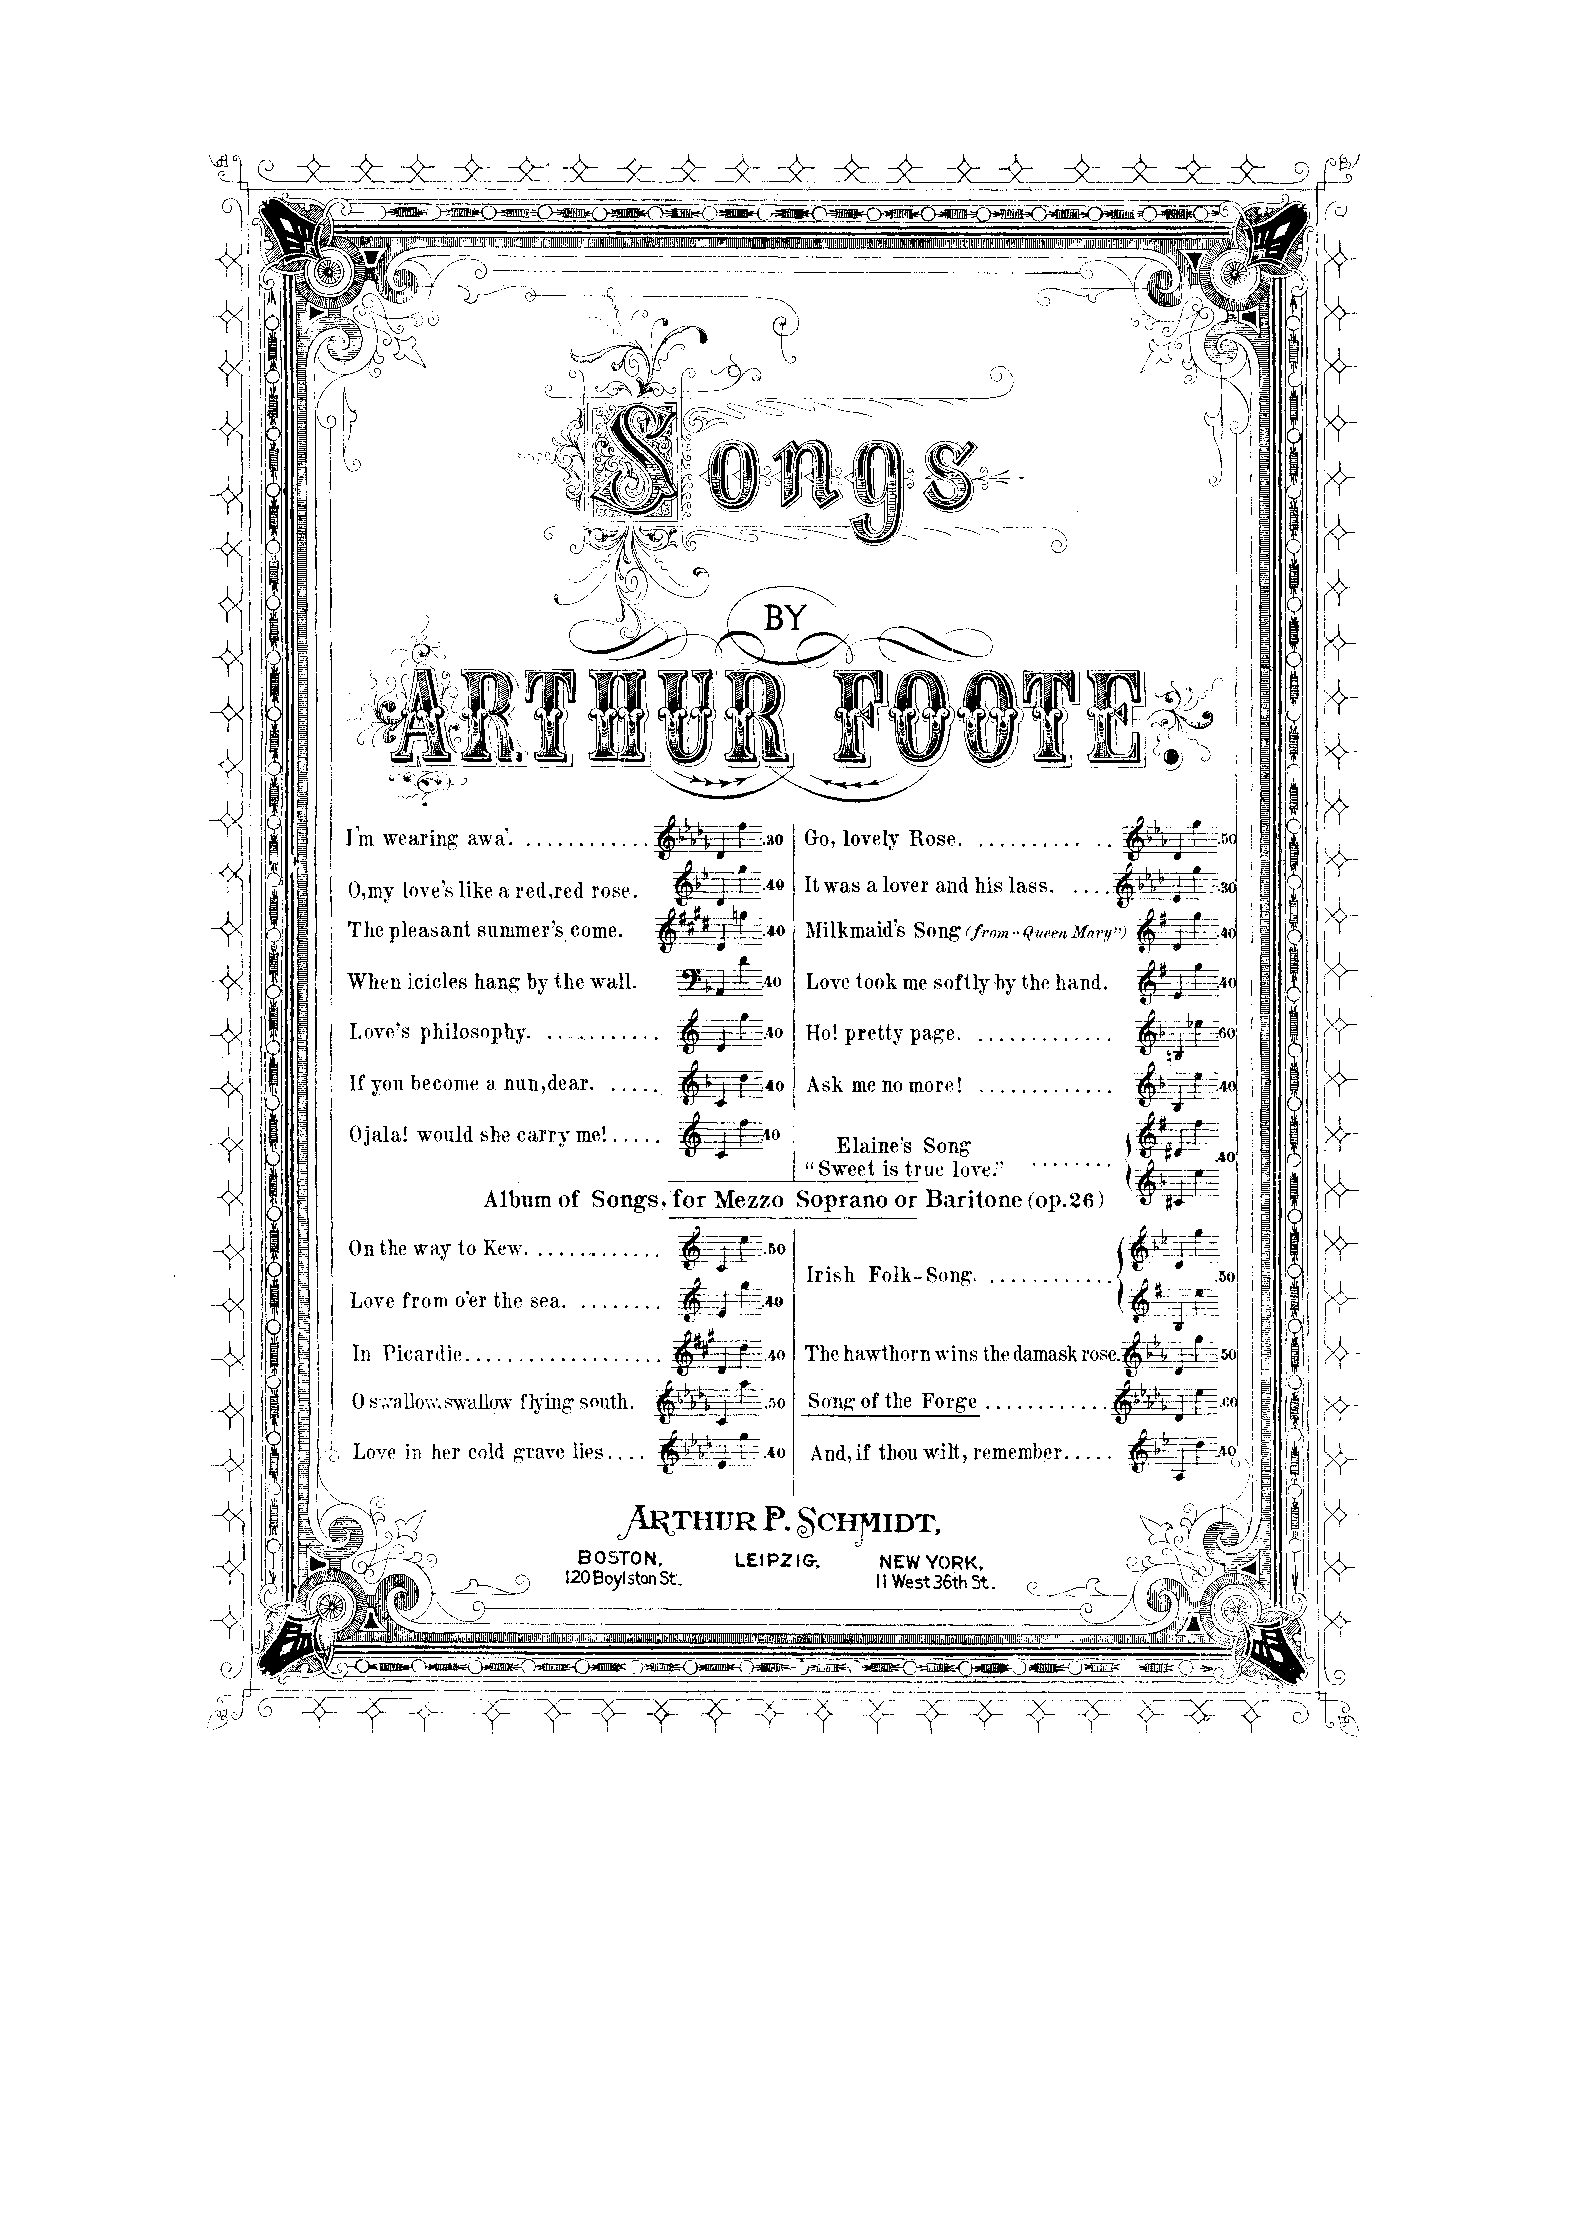 Songs
BY
ARTHUR FOOTE.
I'm wearing awa'. ............ .30
O, my love's like a red, red rose. .40
The pleasant summer's come. .40
When icicles hang by the wall. .40
Love's philosophy. ........... .40
If you become a nun, dear. ..... .40
Ojala! would she carry me!..... .40
Go, lovely Rose. .......... .. .50
It was a lover and his lass. .... .30
Milkmaid's Song (from "Queen Mary") .40
Love took me softly by the hand. .40
Ho! pretty page. ............. .60
Ask me no more! ............. .40
Elaine's Song
"Sweet is true love." ........ .40
Album of Songs, for Mezzo Soprano or Baritone (op. 26)
On the way to Kew. ............ .50
Love from o'er the sea. ........ .40
In Picardie................... .40
O swallow, swallow flying south. .50
Love in her cold grave lies.... .40
Irish Folk-Song. ............ .50
The hawthorn wins the damask rose. .50
Song of the Forge ............ .60
And, if thou wilt, remember..... .40
ARTHUR P. SCHMIDT,
BOSTON, LEIPZIG, NEW YORK,
120 Boylston St. 11 West 36th St.